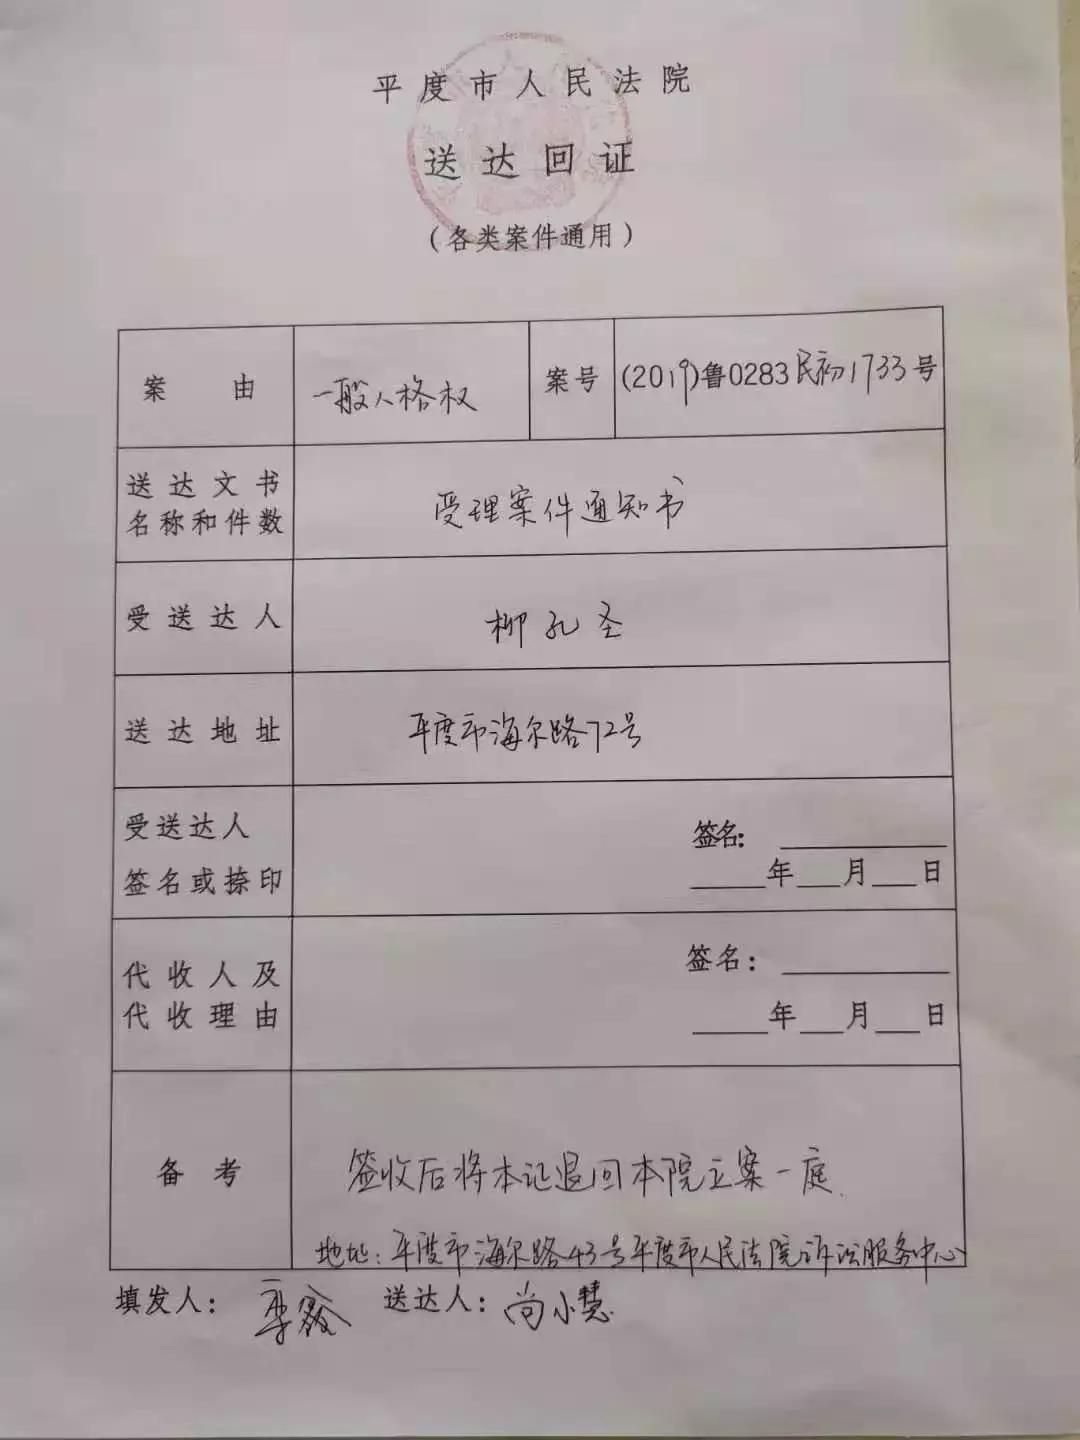 平度市人民法院
送达回证
（各类案件通用）
案由 一般人格权 案号 (2019)鲁0283民初1733号
送达文书
名称和件数
受理案件通知书
受送达人 柳孔圣
送达地址 平度市海尔路72号
受送达人
签名或捺印
签名：
年 月 日
代收人及
代收理由
签名：
年 月 日
备考
签收后将本证退回本院立案一庭.
地址：平度市海尔路43号平度市人民法院诉讼服务中心
填发人： 送达人：尚小慧